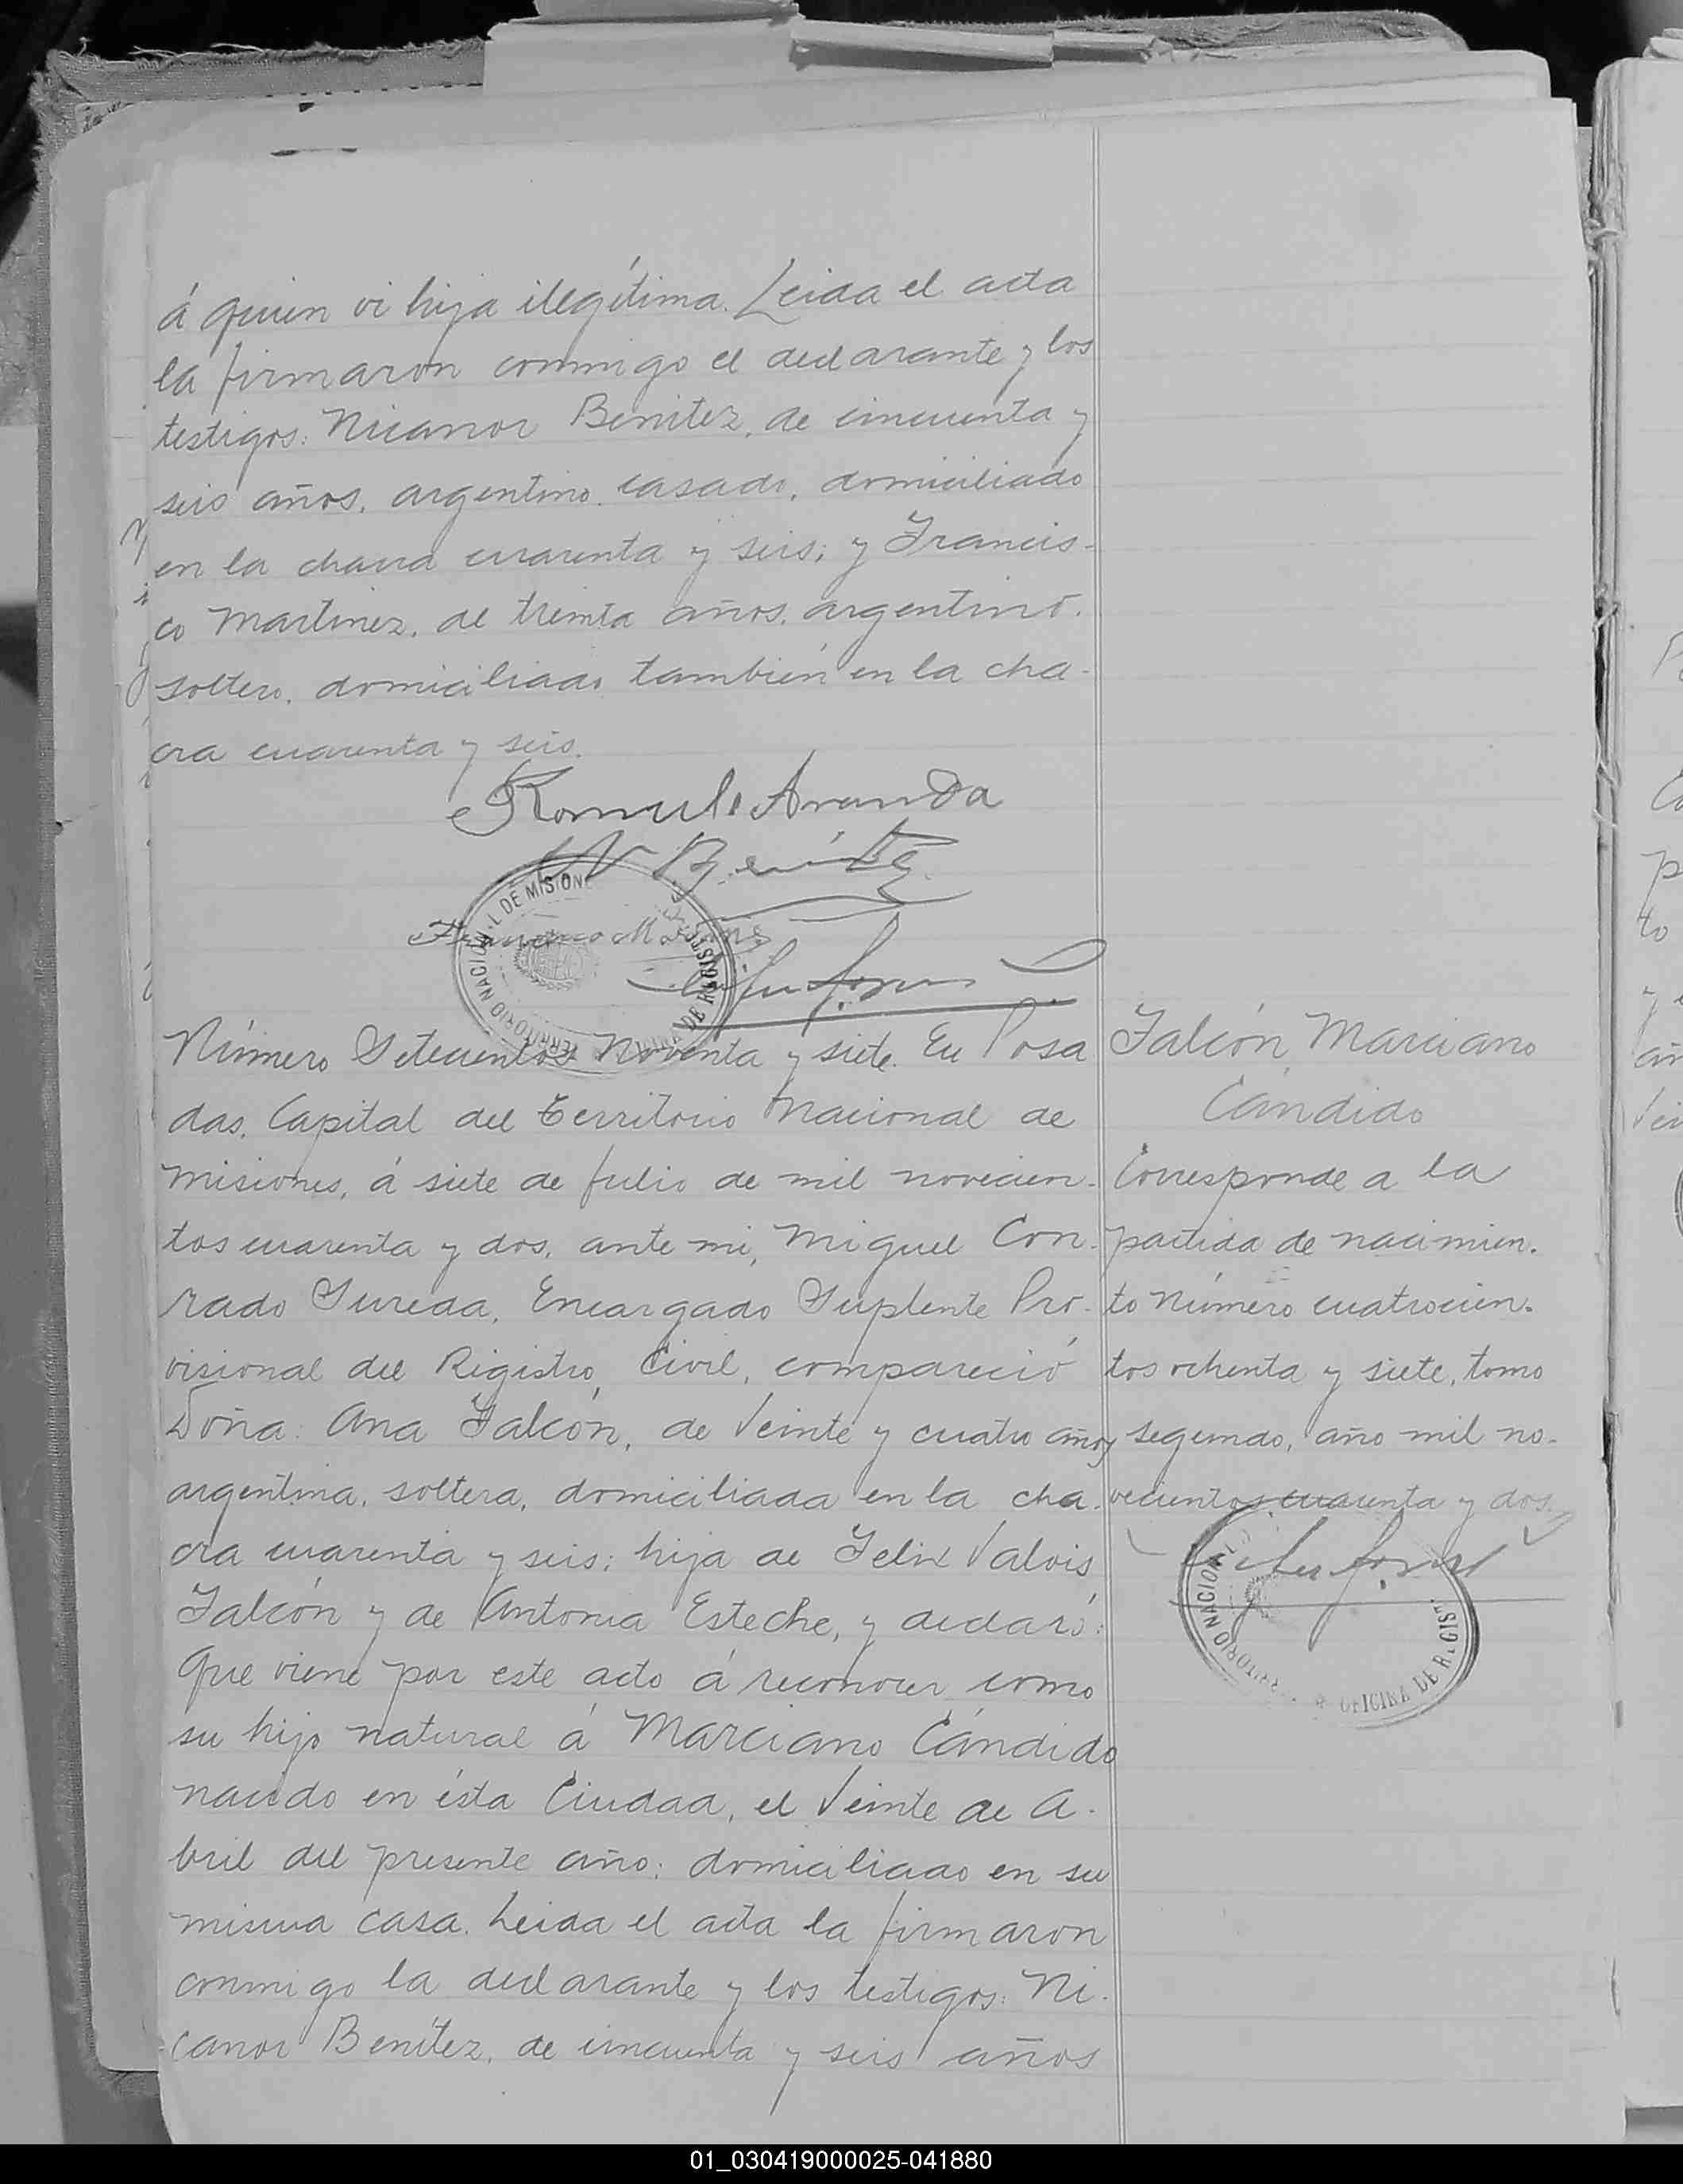 á quien vi hija ilegítima. Leida el acta
la firmaron conmigo el declarante y los
testigos: Nicanor Benitez, de cincuenta y
seis años, argentino, casado, domiciliado
en la chacra cuarenta y seis; y Francis-
co Martinez, de treinta años, argentino,
soltero, domiciliado también en la cha-
cra cuarenta y seis.
Romulo Aranda
N Benítez
Francisco Martinez
TERRITORIO NACIONAL DE MISIONES
DE REGISTRO
Número Setecientos Noventa y siete. En Posa
das, Capital del Territorio Nacional de
Misiones, á siete de Julio de mil novecien-
tos cuarenta y dos, ante mi, Miguel Con-
rado Sureda, Encargado Suplente Pro-
visional del Registro Civil, compareció
Doña: Ana Falcón, de Veinte y cuatro años
argentina, soltera, domiciliada en la cha-
cra cuarenta y seis; hija de Felix Valois
Falcón y de Antonia Esteche, y declaró:
Que viene por este acto á reconocer como
su hijo natural á Marciano Cándido
nacido en ésta Ciudad, el Veinte de A-
bril del presente año; domiciliado en su
misma casa. Leida el acta la firmaron
conmigo la declarante y los testigos: Ni-
canor Benítez, de cincuenta y seis años
Falcón, Marciano
Cándido
Corresponde a la
partida de nacimien-
to Número cuatrocien-
tos ochenta y siete, tomo
segundo, año mil no-
vecientos cuarenta y dos.
OFICINA DE REGIST
01_030419000025-041880